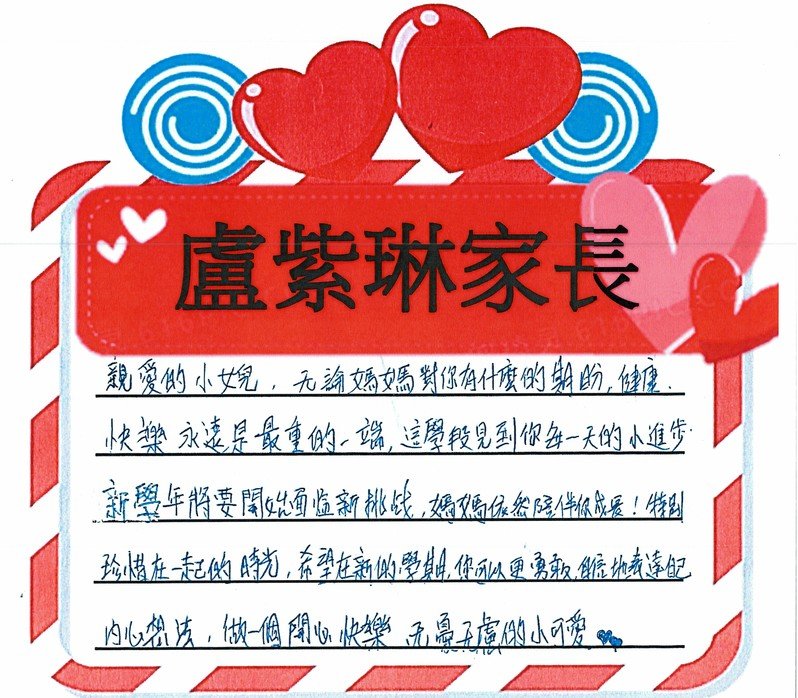 盧紫琳家長
親愛的小女兒，无論媽媽對你有什麼的期盼，健康、
快樂永遠是最重的一端，這學段見到你每一天的小進步
新學年將要開始面临新挑战，媽媽依然陪伴你成長！特别
珍惜在一起的時光，希望在新的學期，你可以更勇敢，自信地表達自己
内心想法，做一個開心快樂无憂无慮的小可愛